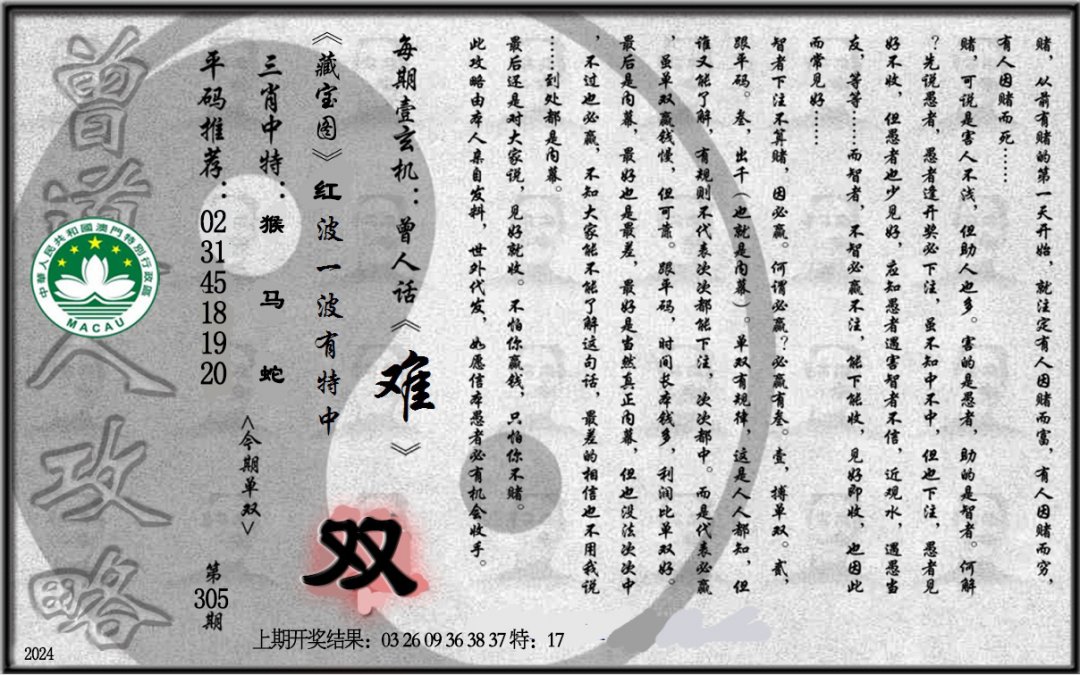 赌，从前有赌的第一天开始，就注定有人因赌而富，有人因赌而穷，
有人因赌而死……
赌，可说是害人不浅，但助人也多。害的是愚者，助的是智者。何解
？先说愚者，愚者逢开奖必下注，虽不知中不中，但也下注，愚者见
好不收，但愚者也少见好，应知愚者遇害智者不信，近观水，遇愚当
友，等等……而智者，不智必赢不注，能下能收，见好即收，也因此
而常见好……
智者下注不算赌，因必赢。何谓必赢？必赢有叁。壹，搏单双。贰，
跟平码。叁，出千（也就是内幕）。单双有规律，这是人人都知，但
谁又能了解，有规则不代表次次都能下注，次次都中。而是代表必赢
，虽单双赢钱慢，但可靠。跟平码，时间长本钱多，利润比单双好。
最后是内幕，最好也是最差，最好是当然真正内幕，但也没法次次中
，不过也必赢，不知大家能不能了解这句话，最差的相信也不用我说
……到处都是内幕。
最后还是对大家说，见好就收。不怕你赢钱，只怕你不赌。
此攻略由本人亲自发料，世外代发，如愿信本愚者必有机会收手。
每期壹玄机：曾人话《难》
《藏宝图》红波一波有特中
三肖中特：猴 马 蛇
平码推荐：02 31 45 18 19 20
<今期单双>
双
第305期
曾道人攻略
中華人民共和國澳門特別行政區
MACAU
上期开奖结果：03 26 09 36 38 37 特：17
2024